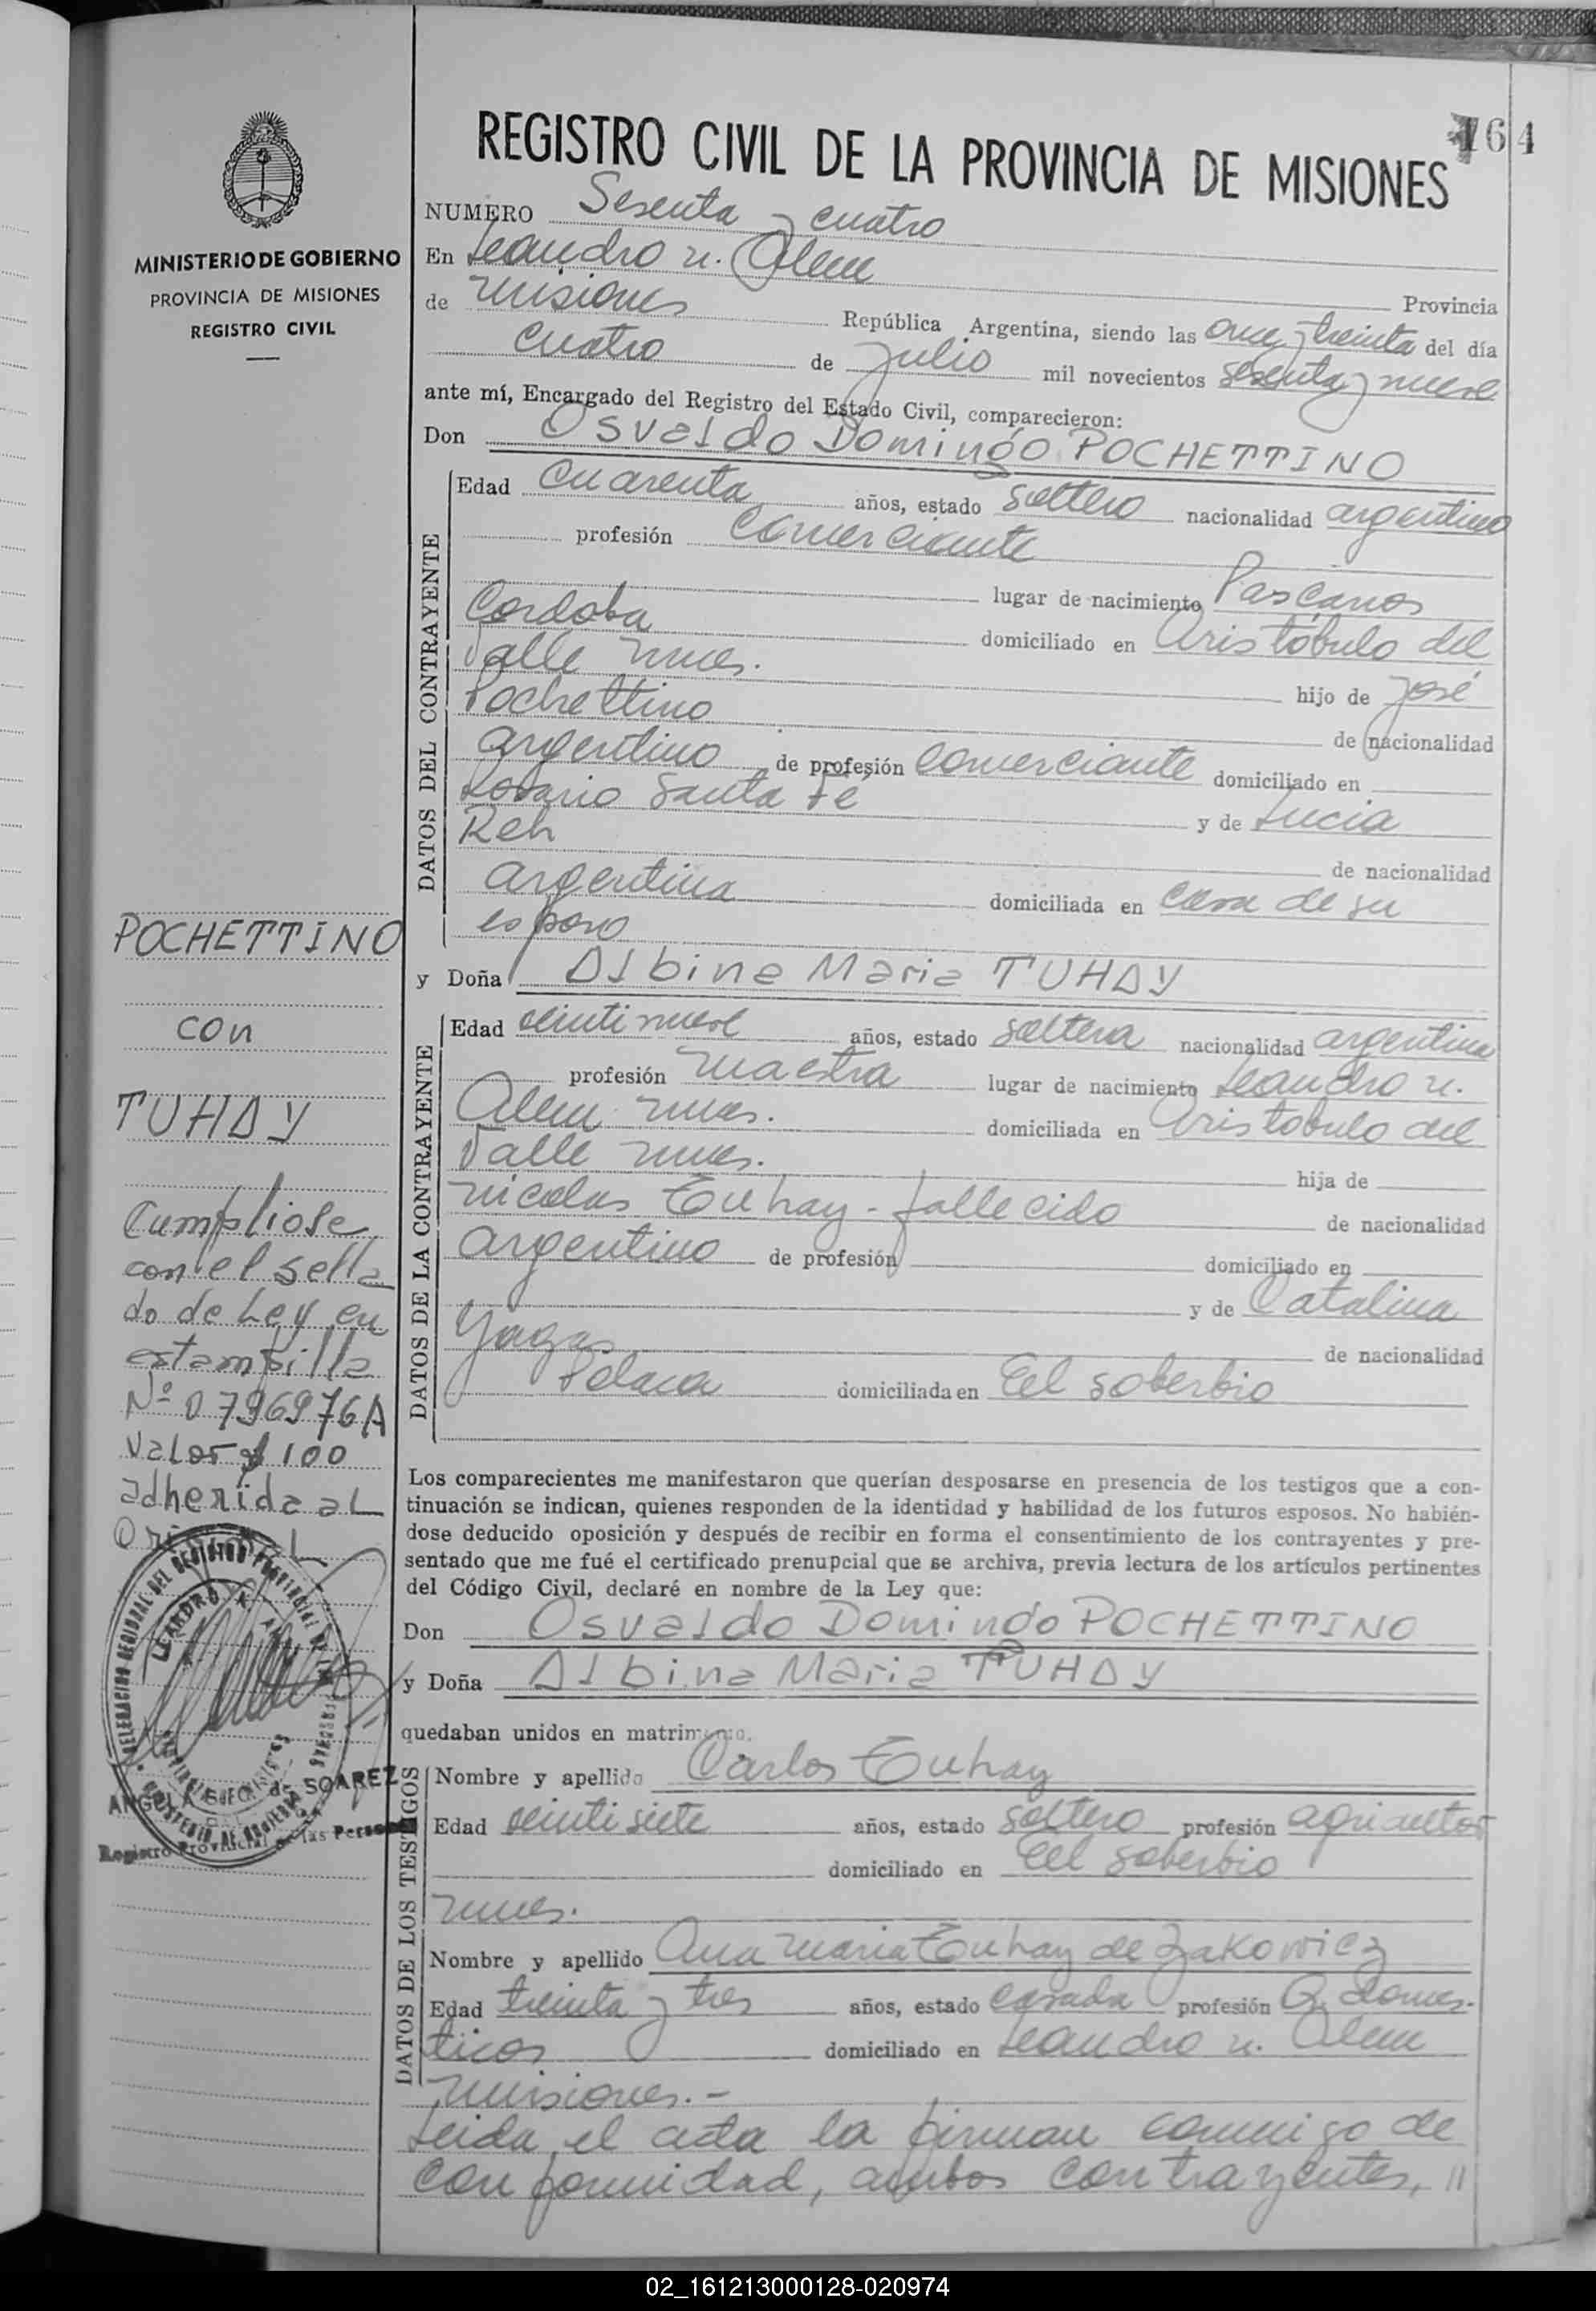 164
REGISTRO CIVIL DE LA PROVINCIA DE MISIONES
MINISTERIO DE GOBIERNO
PROVINCIA DE MISIONES
REGISTRO CIVIL
NUMERO Sesenta y cuatro
En Leandro N. Alem
Provincia
de Misiones República Argentina, siendo las once y treinta del día
cuatro de Julio mil novecientos sesenta y nueve
ante mí, Encargado del Registro del Estado Civil, comparecieron:
Don Osvaldo Domingo POCHETTINO
DATOS DEL CONTRAYENTE
Edad cuarenta años, estado soltero nacionalidad argentino
profesión comerciante
lugar de nacimiento Pascanas
Cordoba domiciliado en Aristóbulo del
Valle Mnes. hijo de José
Pochettino de nacionalidad
argentino de profesión comerciante domiciliado en
Rosario Santa Fé y de Lucia
Reh de nacionalidad
argentina domiciliada en casa de su
esposo
y Doña Albina Maria TUHAY
DATOS DE LA CONTRAYENTE
Edad veintinueve años, estado soltera nacionalidad argentina
profesión maestra lugar de nacimiento Leandro N.
Alem Mnes. domiciliada en Aristobulo del
Valle Mnes. hija de
Nicolas Tuhay - fallecido de nacionalidad
argentino de profesión domiciliado en
y de Catalina
Yagas de nacionalidad
Polaca domiciliada en El soberbio
POCHETTINO
con
TUHAY
Cumpliose
con el sella
do de Ley en
estampilla
Nº 0796976A
Valor $ 100
adherida al
Original
Los comparecientes me manifestaron que querían desposarse en presencia de los testigos que a con-
tinuación se indican, quienes responden de la identidad y habilidad de los futuros esposos. No habién-
dose deducido oposición y después de recibir en forma el consentimiento de los contrayentes y pre-
sentado que me fué el certificado prenupcial que se archiva, previa lectura de los artículos pertinentes
del Código Civil, declaré en nombre de la Ley que:
Don Osvaldo Domingo POCHETTINO
y Doña Albina Maria TUHAY
quedaban unidos en matrimonio.
DATOS DE LOS TESTIGOS
Nombre y apellido Carlos Tuhay
Edad veintisiete años, estado soltero profesión agricultor
domiciliado en El soberbio
Mnes.
Nombre y apellido Ana Maria Tuhay de Zakowicz
Edad treinta y tres años, estado casada profesión Q. domes-
ticos domiciliado en Leandro N. Alem
Misiones.-
Leida el acta la firman conmigo de
conformidad, ambos contrayentes, //
DELEGACION REGIONAL DEL REGISTRO PROVINCIAL DE LAS PERSONAS
LEANDRO N. ALEM
de SOAREZ
Registro Provincial de las Personas
02_161213000128-020974